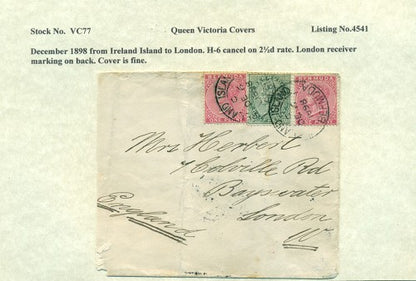 Stock No. VC77 Queen Victoria Covers Listing No.4541
December 1898 from Ireland Island to London. H-6 cancel on 2½d rate. London receiver
marking on back. Cover is fine.
BERMUDA
Mrs Herbert
7 Colville Rd
Bayswater
London
W
England